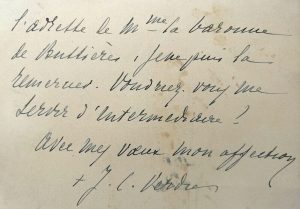 l'adresse de Mme la baronne
de Buttières, je ne puis la
remercier. Voudriez-vous me
servir d'Intermédiaire !
Avec mes vœux mon affection
+ J. C.